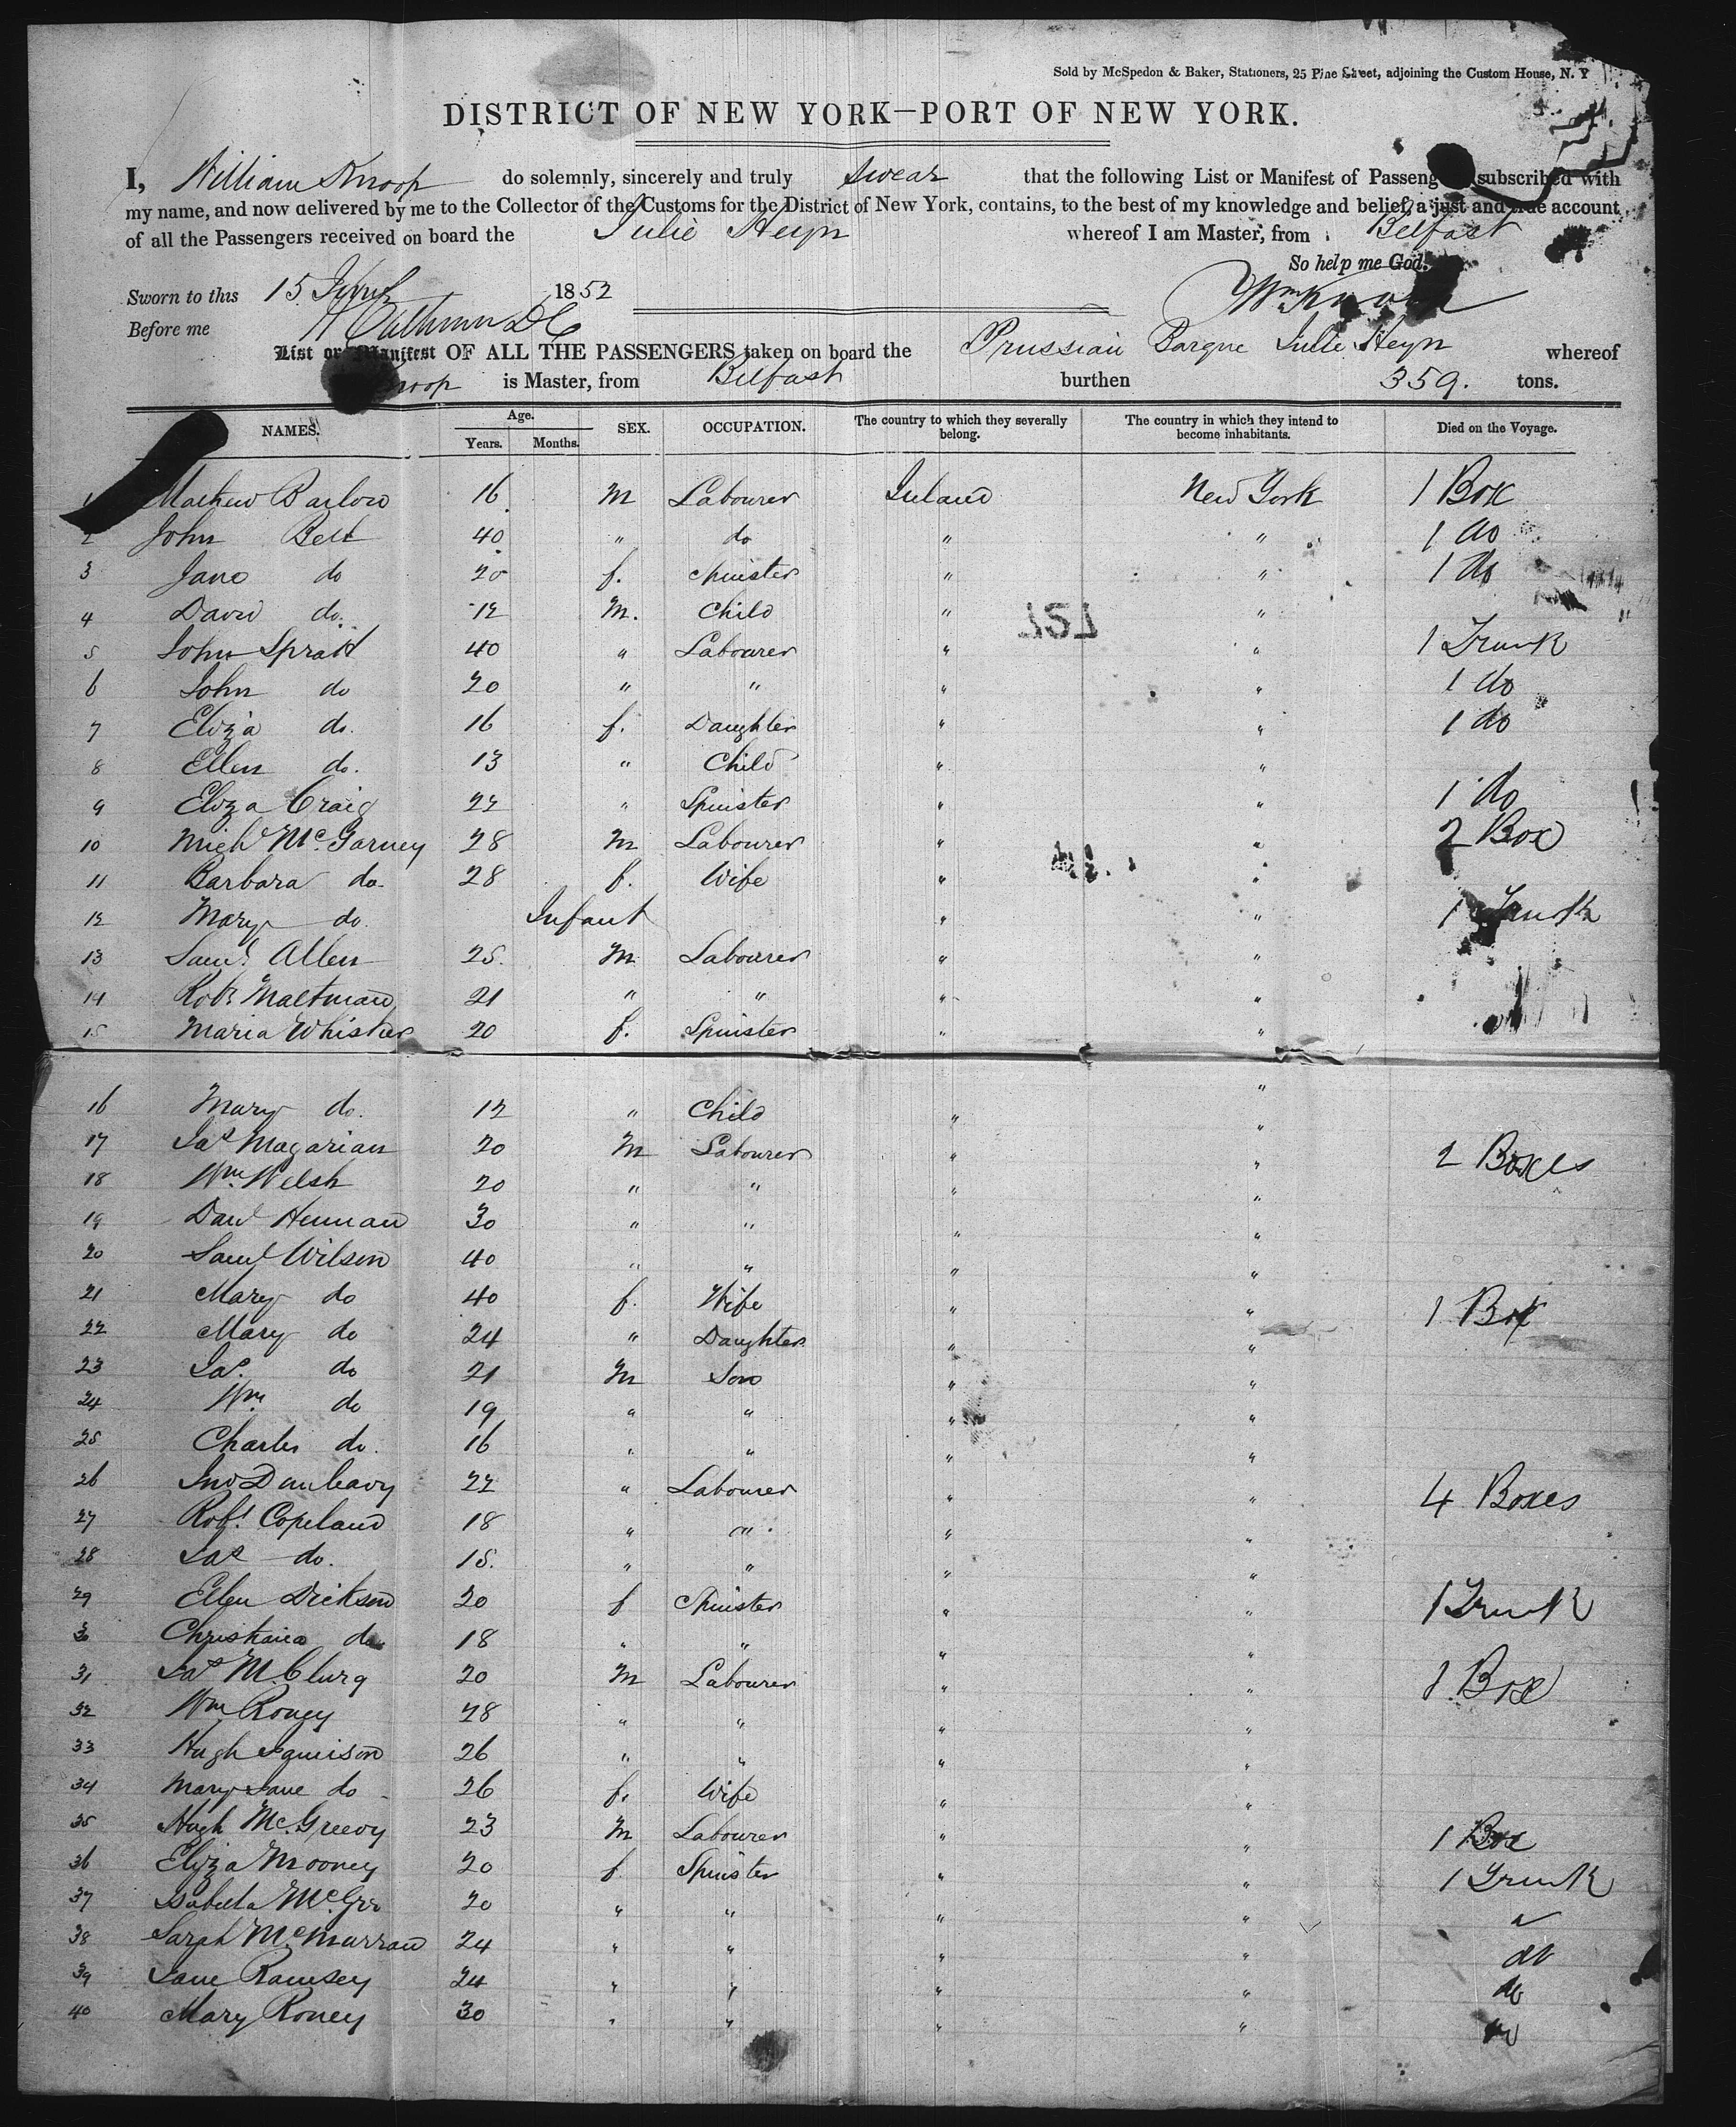 Sold by McSpedon & Baker, Stationers, 25 Pine Street, adjoining the Custom House, N. Y
DISTRICT OF NEW YORK—PORT OF NEW YORK.
I, William Knoop do solemnly, sincerely and truly swear that the following List or Manifest of Passengers subscribed with
my name, and now delivered by me to the Collector of the Customs for the District of New York, contains, to the best of my knowledge and belief, a just and true account
of all the Passengers received on board the Julie Heyn whereof I am Master, from Belfast
So help me God.
Sworn to this 15 June 1852 Wm Knoop
Before me
List or Manifest OF ALL THE PASSENGERS taken on board the Prussian Barque Julie Heyn whereof
Knoop is Master, from Belfast burthen 359. tons.
NAMES. Age. Years. Months. SEX. OCCUPATION. The country to which they severally belong. The country in which they intend to become inhabitants. Died on the Voyage.
1 Mathew Barlow 16 M Labourer Ireland New York 1 Box
2 John Belt 40 " do " " 1 do
3 Jane do 20 f. Spinister " " 1 do
4 David do. 12 M. Child " "
5 John Spratt 40 " Labourer " " 1 Trunk
6 John do 20 " " " " 1 do
7 Eliza do. 16 f. Daughter " " 1 do
8 Ellen do. 13 " Child " "
9 Eliza Craig 22 " Spinister " " 1 do
10 Michl McGarney 28 M Labourer " " 2 Box
11 Barbara do. 28 f. Wife " "
12 Mary do. Infant " " 1 Trunk
13 Saml. Allen 25. M Labourer " "
14 Robt Maltman 21 " " " "
15 Maria Whisker 20 f. Spinister " "
16 Mary do. 12 " Child " "
17 Jas Magarian 20 M Labourer " " 2 Boxes
18 Wm. Welsh 20 " " " "
19 Danl Heenan 30 " " " "
20 Saml Wilson 40 " " " "
21 Mary do 40 f. Wife " " 1 Box
22 Mary do 24 " Daughter " "
23 Jas. do 21 M Son " "
24 Wm. do 19 " " " "
25 Charles do. 16 " " " "
26 Jno Dunleavy 22 " Labourer " " 4 Boxes
27 Robt. Copeland 18 " " " "
28 Jas do. 15. " " " "
29 Ellen Dickson 20 f Spinister " " 1 Trunk
30 Christiana do. 18 " " " "
31 Jas McClurg 20 M Labourer " " 1 Box
32 Wm Roney 28 " " " "
33 Hugh Jamison 26 " " " "
34 Mary Jane do 26 f. Wife " "
35 Hugh McGreevy 23 M Labourer " " 1 Box
36 Eliza Mooney 20 f Spinister " " 1 Trunk
37 Isabella 20 " " " "
38 Sarah McMurran 24 " " " " do
39 Jane Ramsey 24 " " " " do
40 Mary Roney 30 " " " " do